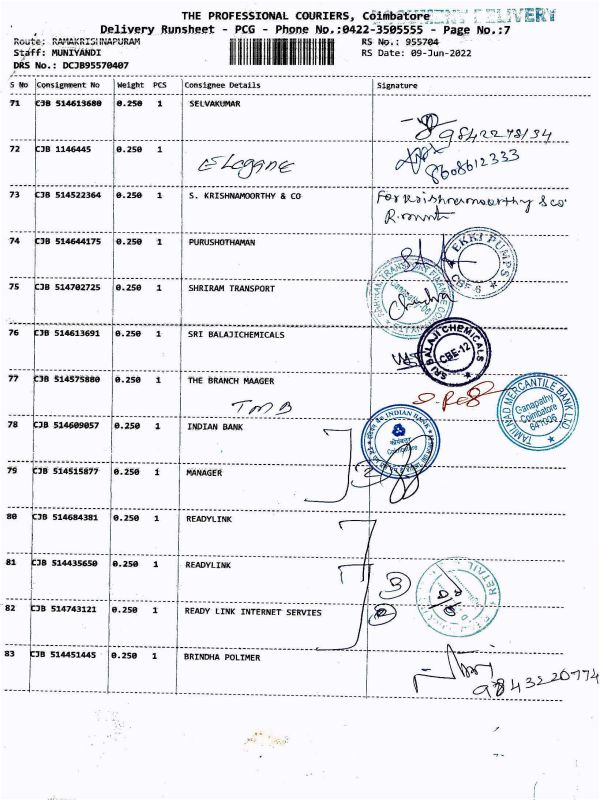 THE PROFESSIONAL COURIERS, Coimbatore
DOCUMENT DELIVERY
Delivery Runsheet - PCG - Phone No.:0422-3505555 - Page No.:7
Route: RAMAKRISHNAPURAM RS No.: 955704
Staff: MUNIYANDI RS Date: 09-Jun-2022
DRS No.: DCJB95570407
S No Consignment No Weight PCS Consignee Details Signature
71 CJB 514613680 0.250 1 SELVAKUMAR
9842278134
72 CJB 1146445 0.250 1
Elegane
8608612333
73 CJB 514522364 0.250 1 S. KRISHNAMOORTHY & CO For Krishnamoorthy & co
74 CJB 514644175 0.250 1 PURUSHOTHAMAN
EKKI PUMPS
CBE-6
75 CJB 514702725 0.250 1 SHRIRAM TRANSPORT
76 CJB 514613691 0.250 1 SRI BALAJICHEMICALS
SRI BALAJI CHEMICALS
CBE-12
77 CJB 514575880 0.250 1 THE BRANCH MAAGER
TMB
TAMILNAD MERCANTILE BANK LTD.
Ganapathy
Coimbatore
641006
78 CJB 514609057 0.250 1 INDIAN BANK
INDIAN BANK
79 CJB 514515877 0.250 1 MANAGER
2
80 CJB 514684381 0.250 1 READYLINK
81 CJB 514435650 0.250 1 READYLINK
3
RETAIL
82 CJB 514743121 0.250 1 READY LINK INTERNET SERVIES
83 CJB 514451445 0.250 1 BRINDHA POLIMER
9843220774